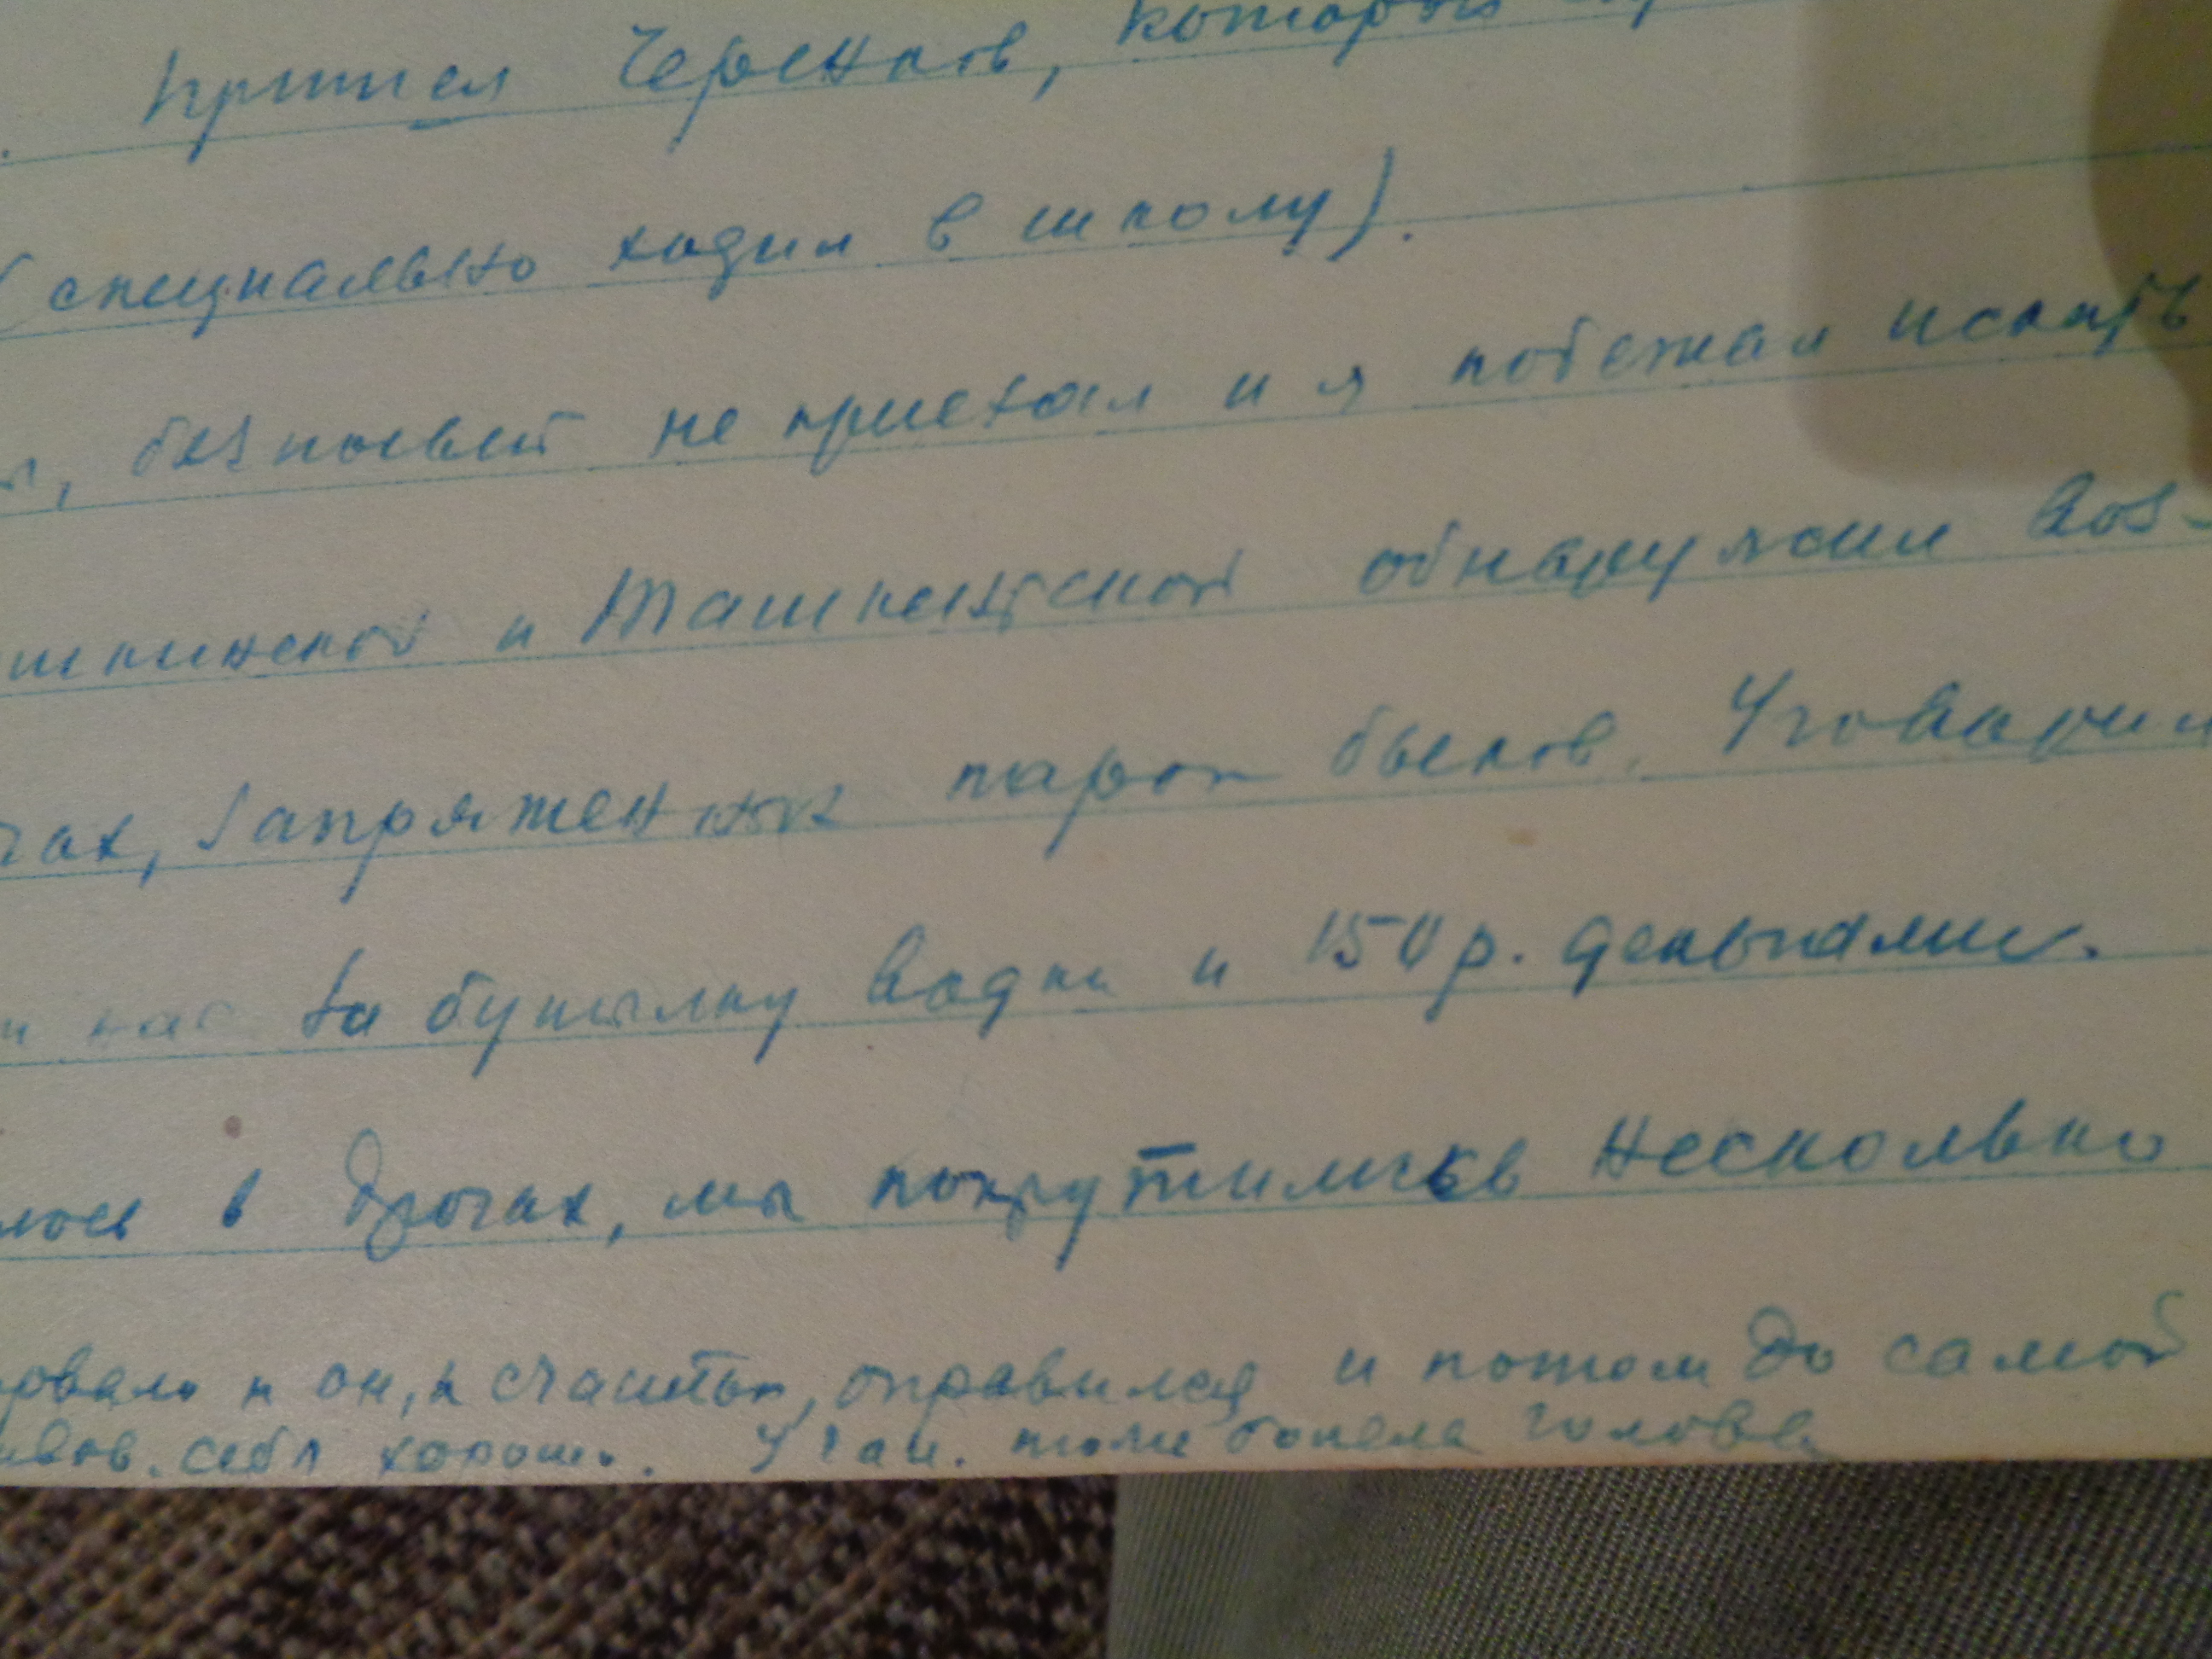 . Пришел Черенков, который
(специально ходил в школу).
, не приехал и я побежал искать
шкинской и Ташкентской обнаружил воз-
чах, запряженных парой быков. Уговорил
и нас за бутылку водки и 150 р. деньгами.
лось в дрогах, мы покрутились несколько
ровало и он, к счастью, оправился и потом до самой
ствов. себя хорошо. У Гал. тоже болела голова